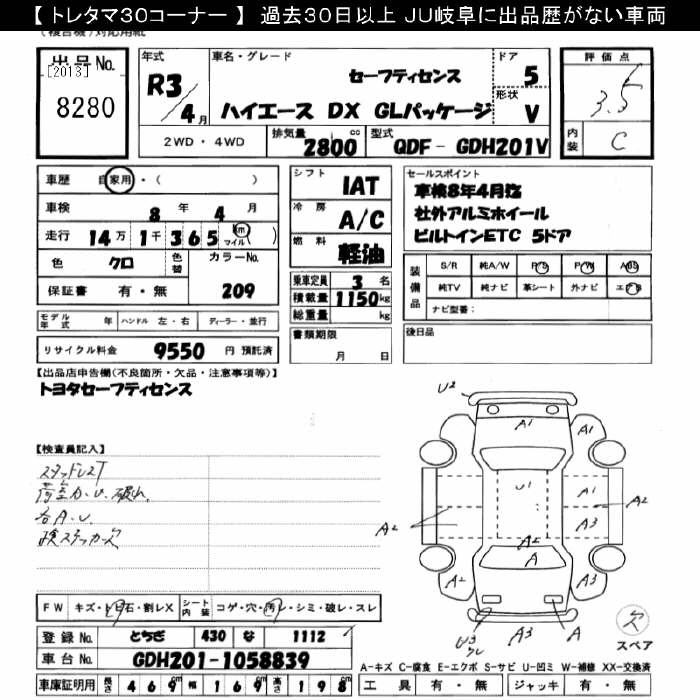 【 トレタマ30コーナー 】 過去30日以上 JU岐阜に出品歴がない車両
出品No.
[2013]
8280
年式 車名・グレード ドア
R3/4月
セーフティセンス 5
ハイエース DX GLパッケージ
形状 V
2WD・4WD 排気量 2800 cc 型式 QDF-GDH201V
評価点
3.5
内装 C
車歴 自家用・( )
車検 8年 4月
走行 14万 1千 365 km マイル ( )
色 クロ 色替 カラーNo. 209
保証書 有・無
モデル年式 年 ハンドル 左・右 ディーラー・並行
リサイクル料金 9550 円 預託済
シフト IAT
冷房 A/C
燃料 軽油
乗車定員 3 名
積載量 1150 kg
総重量 kg
書類期限
月 日
セールスポイント
車検8年4月迄
社外アルミホイール
ビルトインETC 5ドア
装備品 S/R 純A/W P/S P/W ABS
純TV 純ナビ 革シート 外ナビ エアB
ナビ型番:
後日品
【出品店申告欄(不良箇所・欠品・注意事項等)】
トヨタセーフティセンス
【検査員記入】
スタッドレスT
荷室カ.U.破れ.
各A.U.
検ステッカー欠
U2
A1
A1
A1
U1
A1
A2
A2
A3
A2
A
A2
A3
A3
A
欠
スペア
FW キズ・トビ石・割レX シート内装 コゲ・穴・汚レ・シミ・破レ・スレ
登録No. とちぎ 430 な 1112
車台No. GDH201-1058839
車庫証明用 長さ 469 cm 幅 169 cm 高さ 198 cm
A-キズ C-腐食 E-エクボ S-サビ U-凹ミ W-補修 XX-交換済
工具 有・無 ジャッキ 有・無